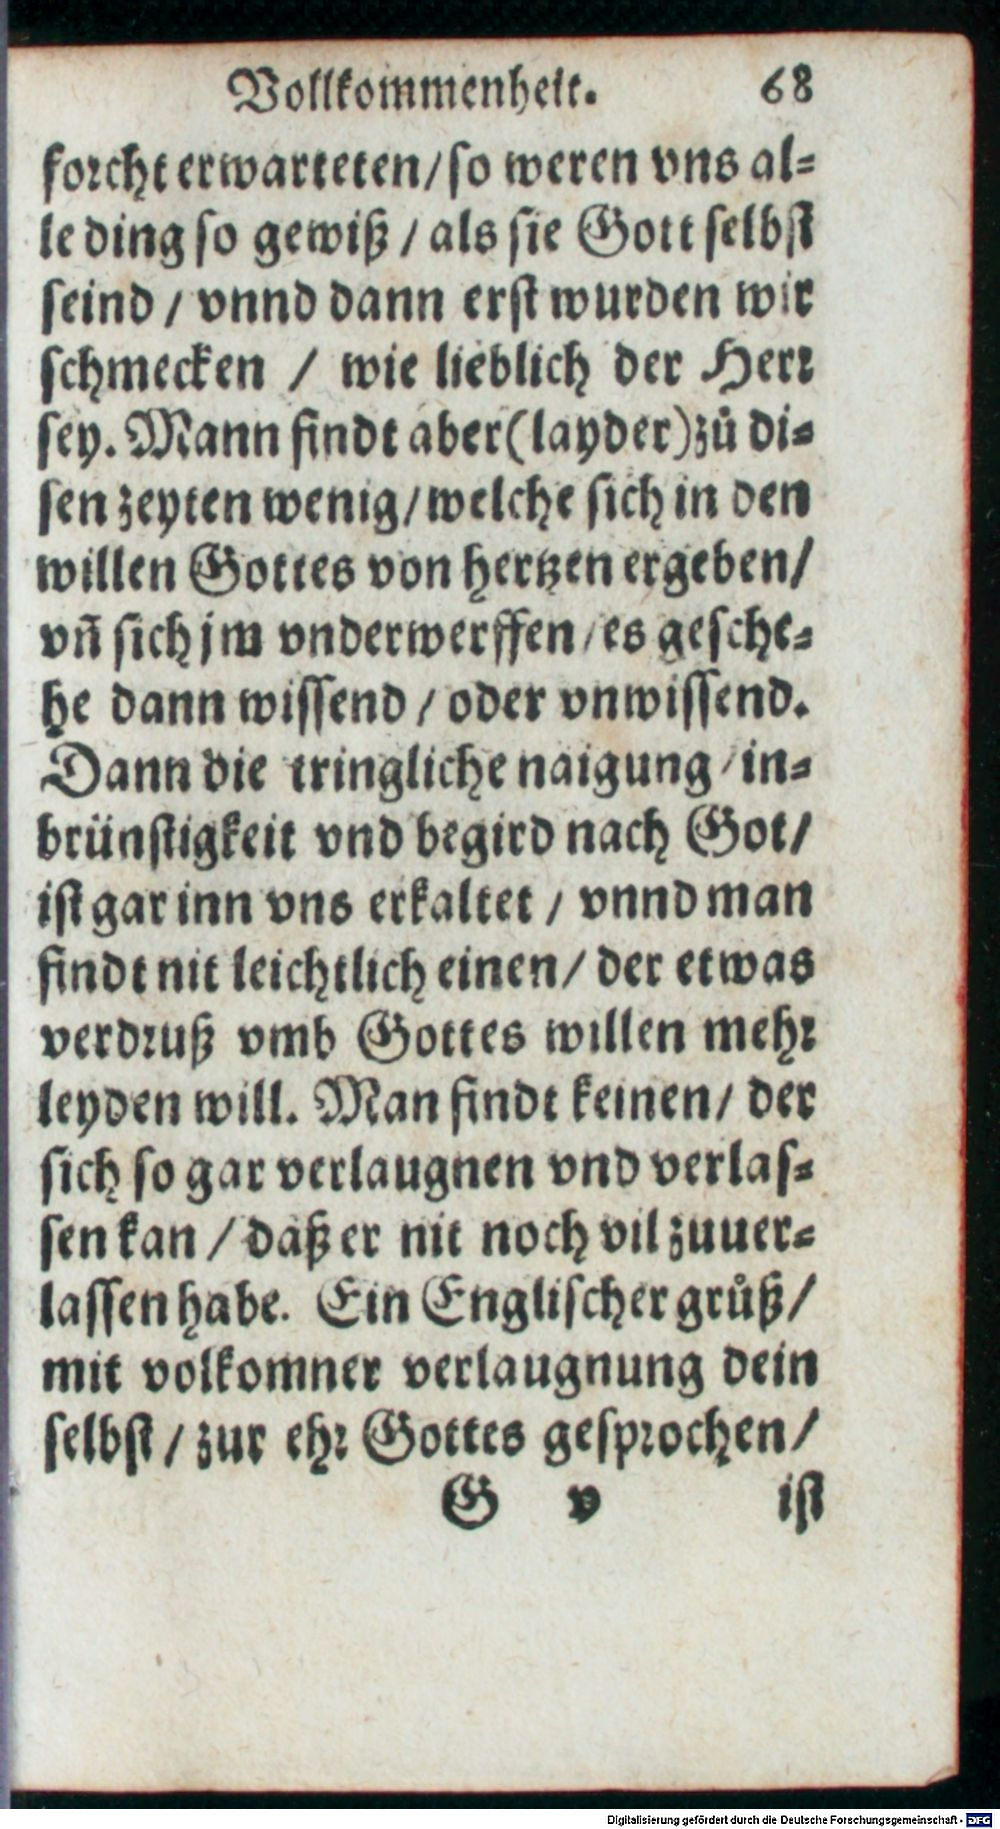 Vollkommenheit. 68
forcht erwarteten/so weren vns al=
le ding so gewiß / als sie Gott selbst
seind / vnnd dann erst wurden wir
schmecken / wie lieblich der Herr
sey. Mann findt aber (layder) zů di=
sen zeyten wenig/welche sich in den
willen Gottes von hertzen ergeben/
vñ sich jm vnderwerffen/es gesche=
he dann wissend / oder vnwissend.
Dann die tringliche naigung/in=
brünstigkeit vnd begird nach Got/
ist gar inn vns erkaltet / vnnd man
findt nit leichtlich einen/ der etwas
verdruß vmb Gottes willen mehr
leyden will. Man findt keinen/ der
sich so gar verlaugnen vnd verlas=
sen kan / daß er nit noch vil zuuer=
lassen habe. Ein Englischer grůß/
mit volkomner verlaugnung dein
selbst / zur ehr Gottes gesprochen/
G v ist
Digitalisierung gefördert durch die Deutsche Forschungsgemeinschaft - DFG